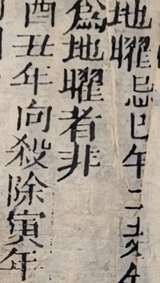 地曜忌巳午二亥年
為地曜者非
酉丑年向殺除寅年